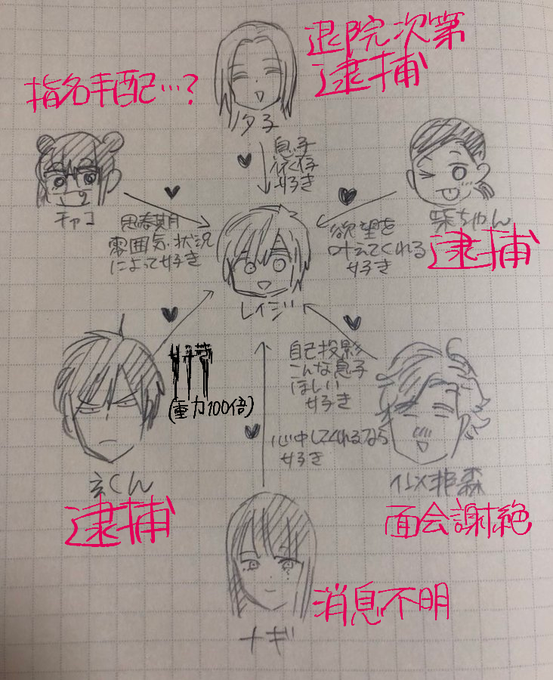 退院次第
逮捕
指名手配…?
夕子
息子
依存
好き
チャコ
思春期
雰囲気・状況
によって好き
柴ちゃん
逮捕
欲望を
叶えてくれる
好き
レイジ
好き
(重力100倍)
自己投影
こんな息子
ほしい
好き
玄くん
逮捕
心中してくれるなら
好き
面会謝絶
ナギ
消息不明